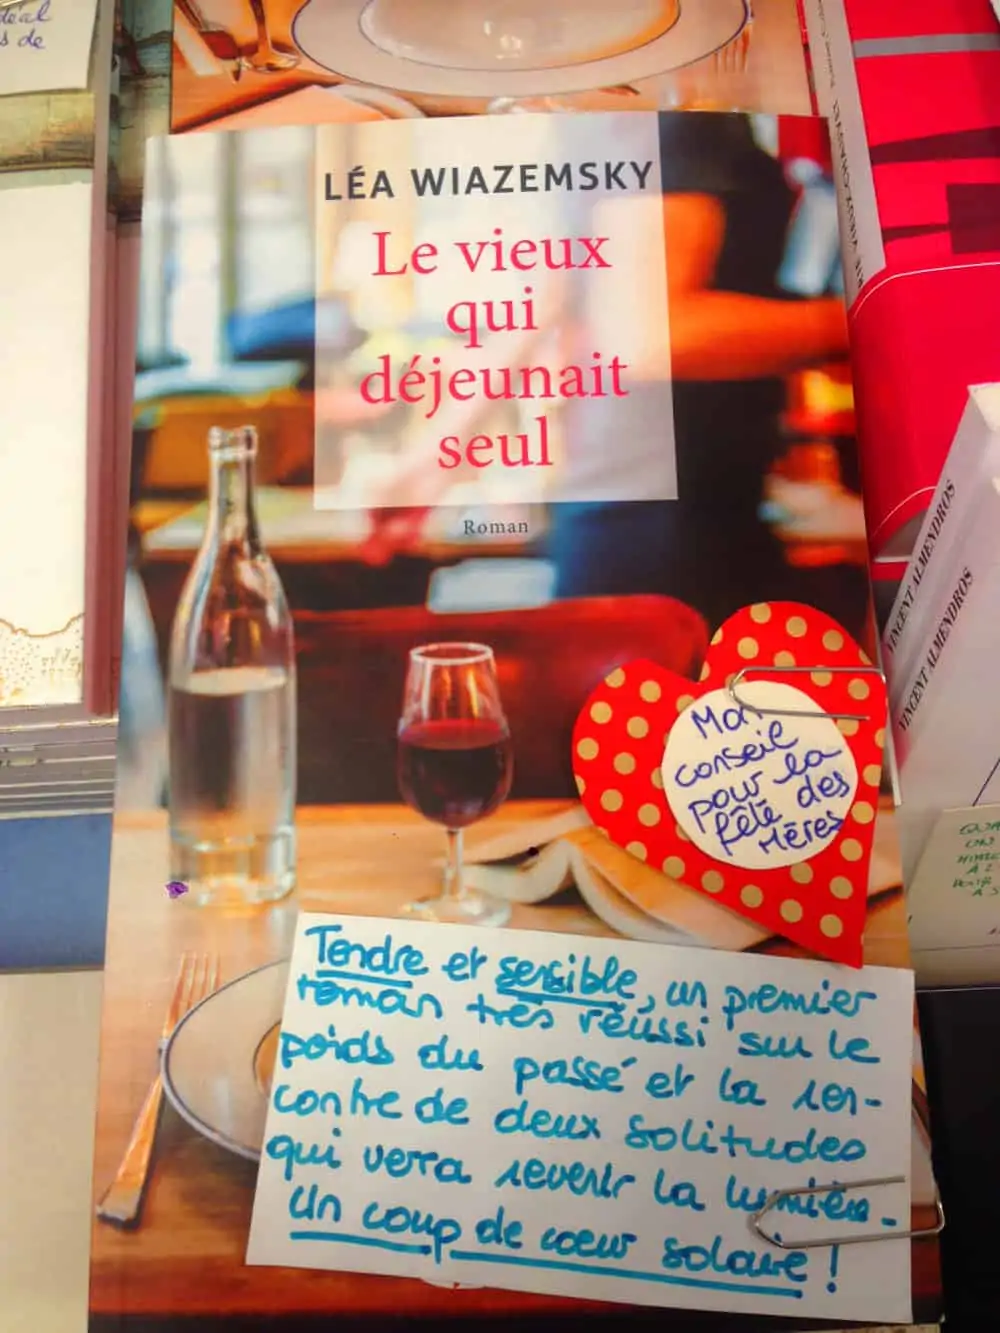 LÉA WIAZEMSKY
Le vieux
qui
déjeunait
seul
Roman
Mon
conseil
pour la
fête des
Mères
Tendre et sensible, un premier
roman très réussi sur le
poids du passé et la ren-
contre de deux solitudes
qui verra revenir la lumière.
Un coup de coeur solaire !
VINCENT ALMENDROS
VINCENT ALMENDROS
s de